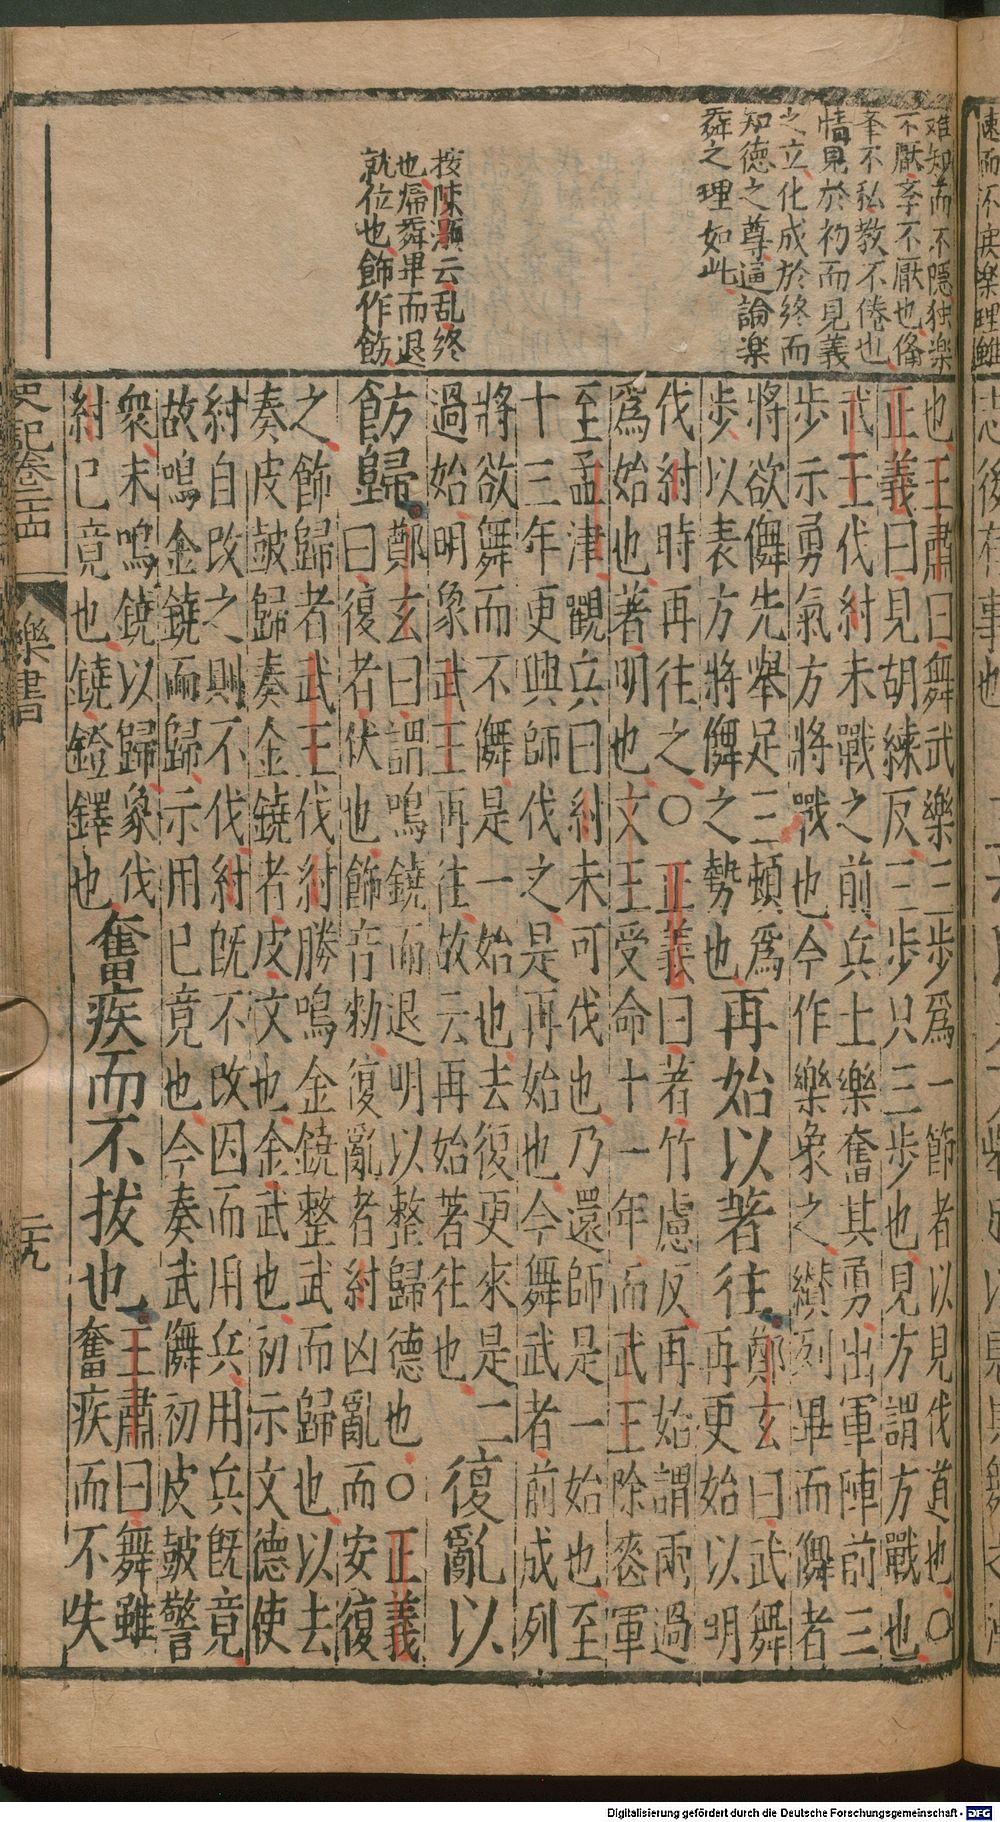 难知而不隠独楽
不厭孝不厭也俻
挙不私教不倦也
情見於初而見義
之立化成於終而
知徳之尊逼論楽
舜之理如此
按陳灝云乱終
也帰舜畢而退
就位也飾作飭
也王肅曰舞武樂三步爲一節者以見伐道也〇
正義曰見胡練反三步只三步也見方謂方戰也
武王伐紂未戰之前兵士樂奮其勇出軍陣前三
步示勇氣方將戰也今作樂象之纉列畢而儛者
將欲儛先舉足三頓爲
步以表方將儛之勢也
再始以著往
鄭玄曰武舞
再更始以明
伐紂時再往之〇正義曰著竹慮反再始謂兩過
爲始也著明也文王受命十一年而武王除喪軍
至孟津觀兵曰紂未可伐也乃還師是一始也至
十三年更興師伐之是再始也今舞武者前成列
將欲舞而不儛是一始也去復更來是二
過始明象武王再往故云再始著往也
復亂以
飭歸
方鄭玄曰謂鳴鐃而退明以整歸德也〇正義
曰復者伏也飾音勅復亂者紂凶亂而安復
之飾歸者武王伐紂勝鳴金鐃整武而歸也以去
奏皮皷歸奏金鐃者皮文也金武也初示文德使
紂自改之則不伐紂旣不改因而用兵用兵旣竟
故鳴金鐃而歸示用已竟也今奏武儛初皮皷警
衆末鳴鐃以歸象伐
紂已竟也鐃鐙鐸也
奮疾而不拔也
王肅曰舞雖
奮疾而不失
史記卷二十四
樂書
二十九
Digitalisierung gefördert durch die Deutsche Forschungsgemeinschaft - DFG